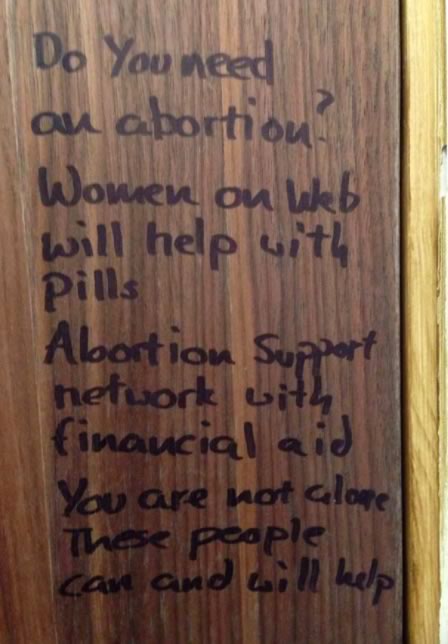 Do You need
an abortion?
Women on Web
will help with
pills
Abortion Support
network with
financial aid
You are not alone
These people
can and will help